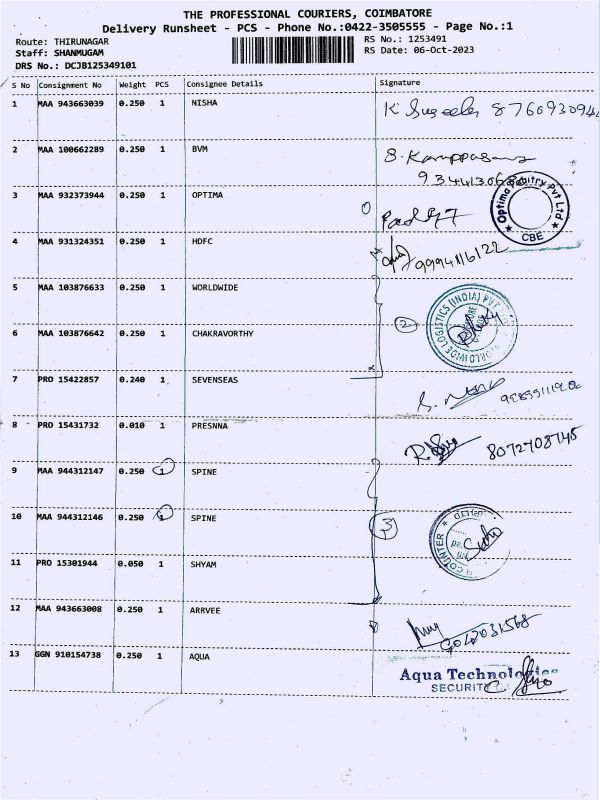 THE PROFESSIONAL COURIERS, COIMBATORE
Delivery Runsheet - PCS - Phone No.:0422-3505555 - Page No.:1
Route: THIRUNAGAR
RS No.: 1253491
Staff: SHANMUGAM
RS Date: 06-Oct-2023
DRS No.: DCJB125349101
S No Consignment No Weight PCS Consignee Details Signature
1 MAA 943663039 0.250 1 NISHA
2 MAA 100662289 0.250 1 BVM
3 MAA 932373944 0.250 1 OPTIMA
Optima Pvt Ltd
CBE
4 MAA 931324351 0.250 1 HDFC
5 MAA 103876633 0.250 1 WORLDWIDE
WORLDWIDE LOGISTICS (INDIA) PVT
2
6 MAA 103876642 0.250 1 CHAKRAVORTHY
7 PRO 15422857 0.240 1 SEVENSEAS
8 PRO 15431732 0.010 1 PRESNNA
8072708745
9 MAA 944312147 0.250 1 SPINE
10 MAA 944312146 0.250 1 SPINE
3
COUNTER
11 PRO 15301944 0.050 1 SHYAM
12 MAA 943663008 0.250 1 ARRVEE
13 GGN 910154738 0.250 1 AQUA
Aqua Technologies
SECURITY